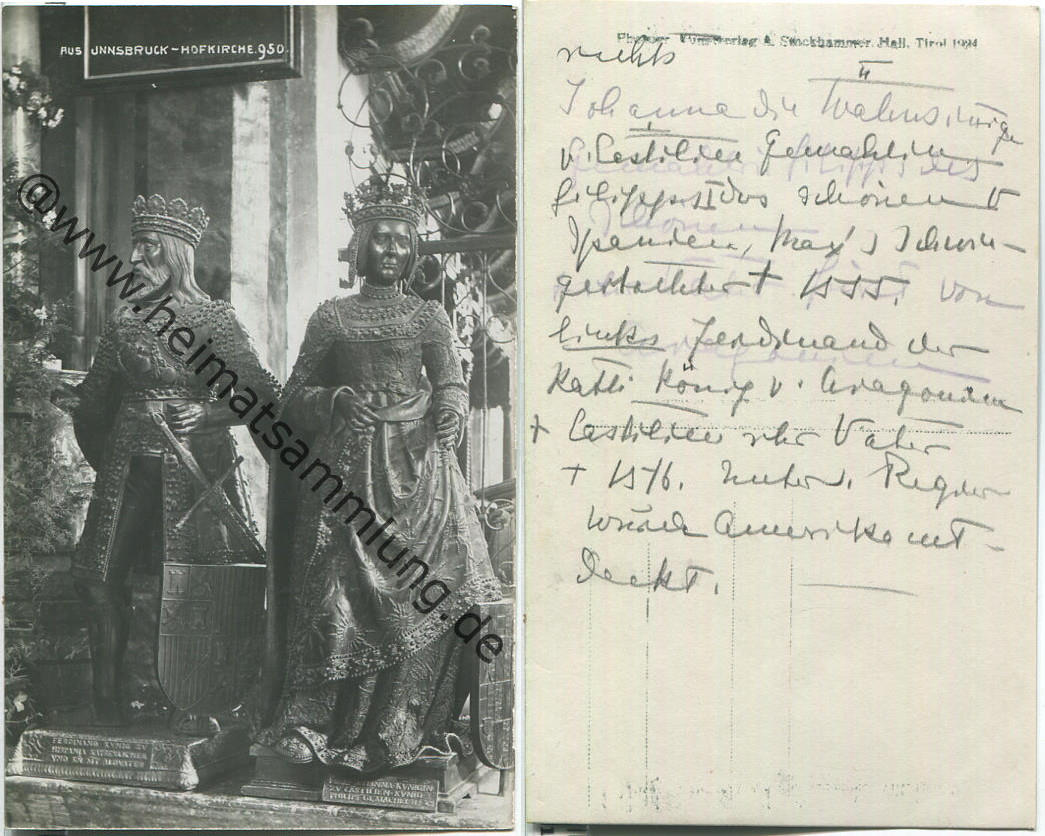 AUS INNSBRUCK-HOFKIRCHE.950.
@www.heimatsammlung.de
FERDINAND KVNIG ZV
HISPANIA
VND
KVNIGIN
ZV CASTILIEN KVNIG
PHILIPS GEMACHEL
Kunstverlag A. Stockhammer, Hall, Tirol 1924
rechts
II
Johanna die Wahnsinnige
v. Castilien Gemahlin
Filipps I des schönen v
Spanien, Max's Schwie-
gertochter † 1555. von
links Ferdinand der
Kath. König v. Aragonien
+ Castilien ihr Vater
† 1516. Unter s. Regier
wurde Amerika ent-
deckt.